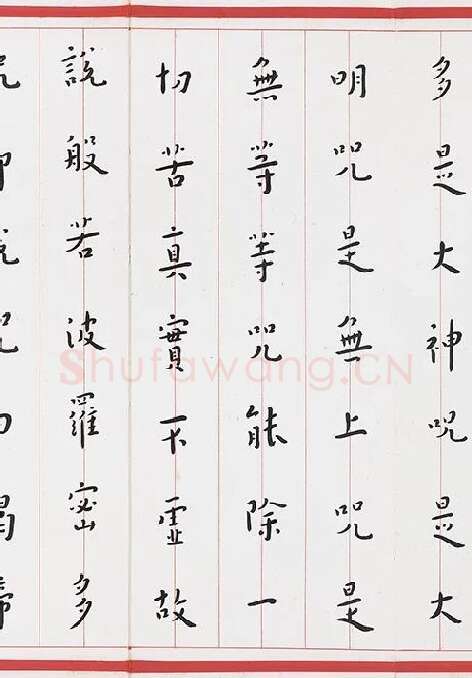 多是大神呪是大
明咒是無上咒是
無等等咒能除一
切苦真實不虛故
說般若波羅密多
Shufawang.CN